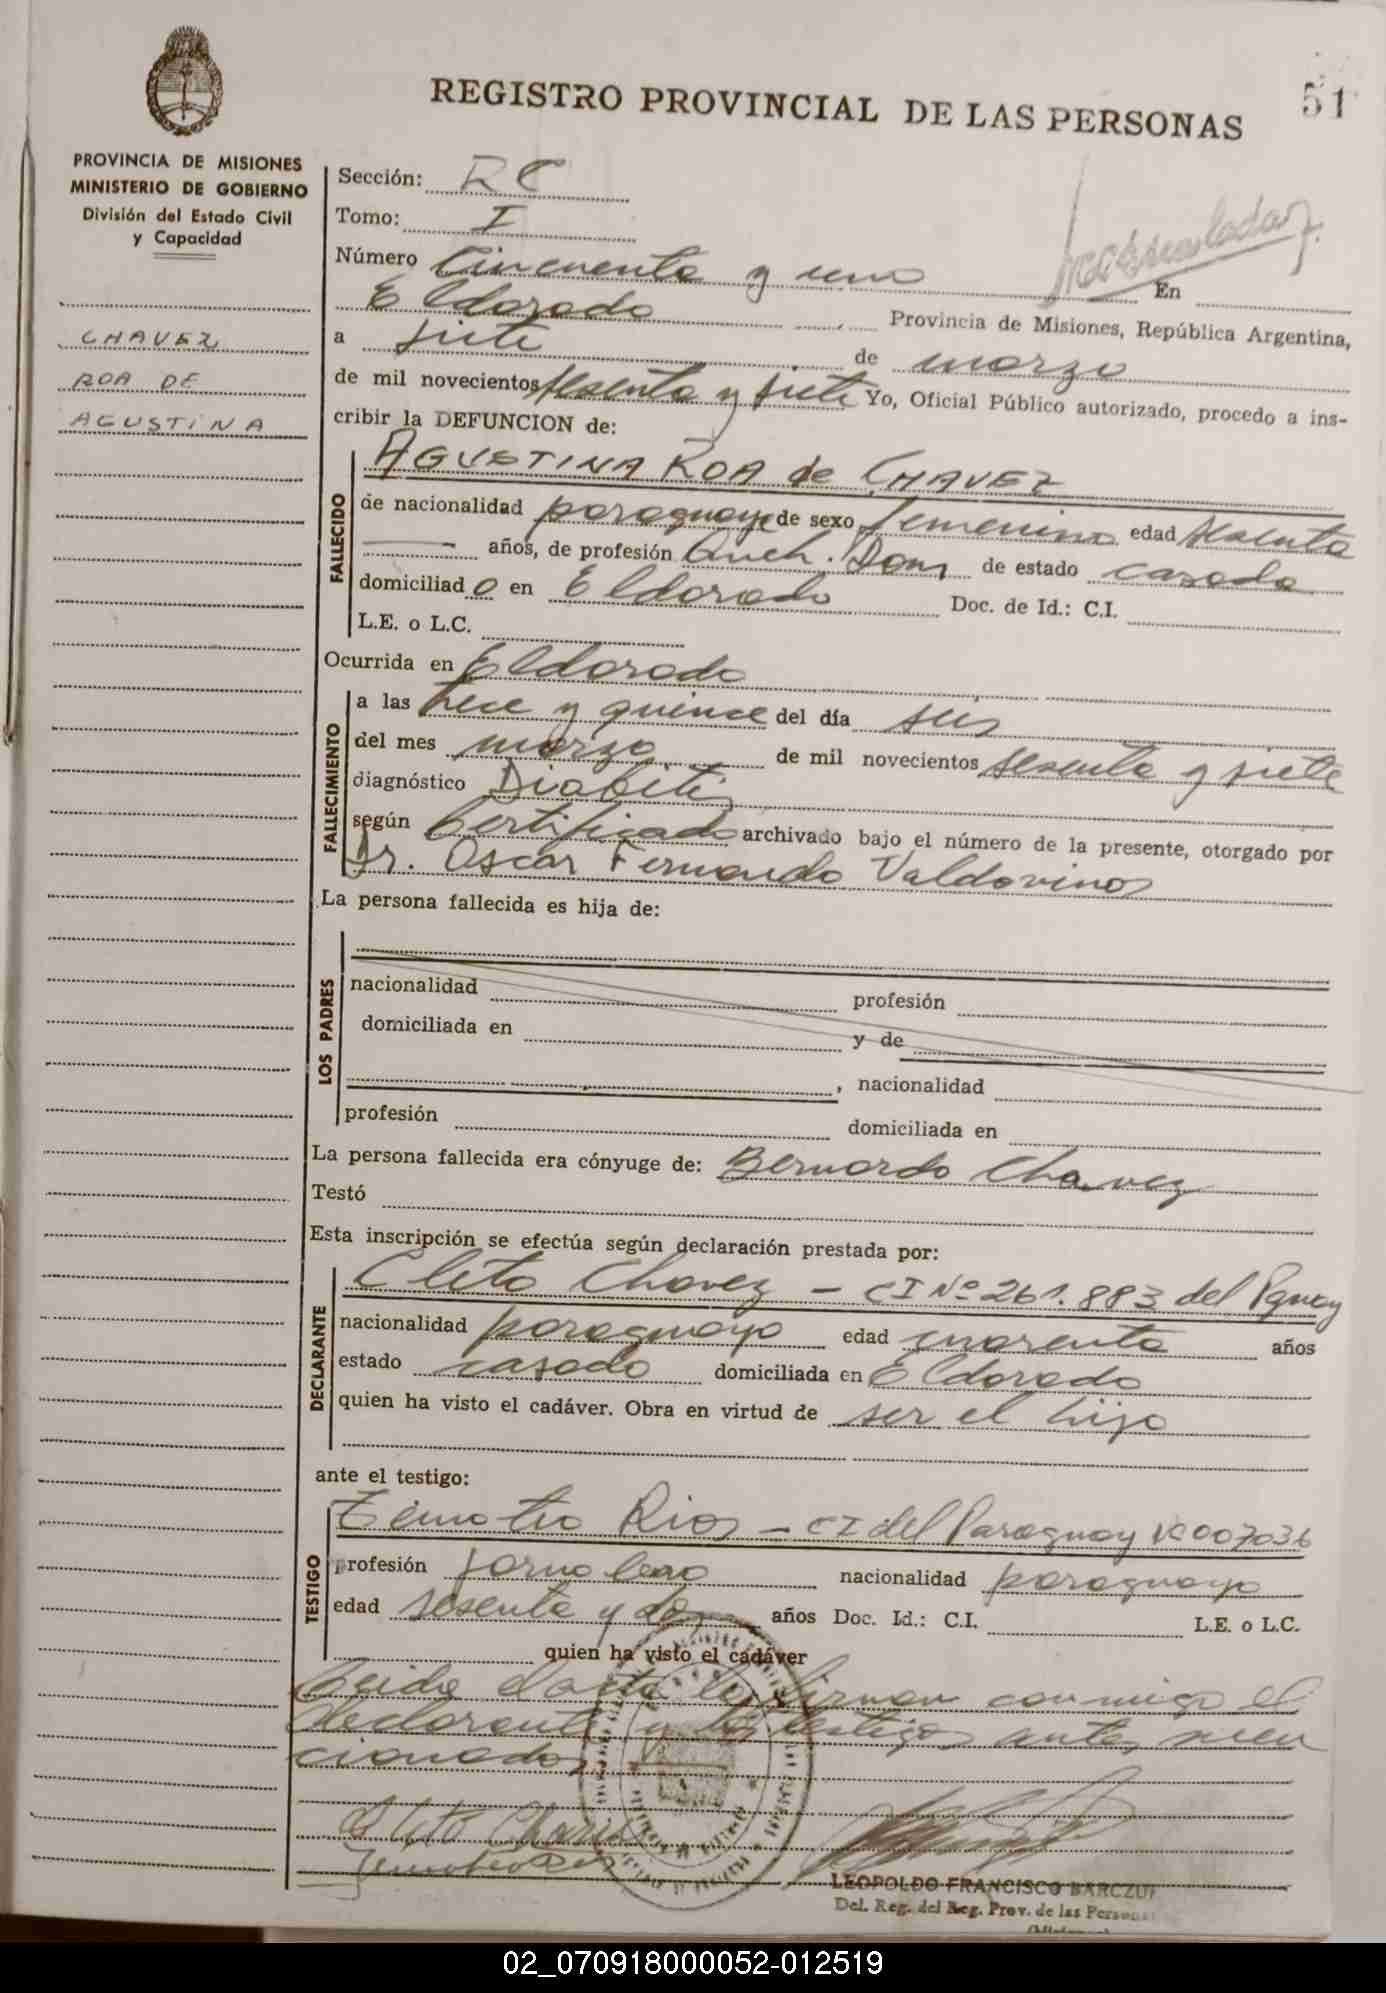 51
REGISTRO PROVINCIAL DE LAS PERSONAS
PROVINCIA DE MISIONES
MINISTERIO DE GOBIERNO
División del Estado Civil
y Capacidad
CHAVEZ
ROA DE
AGUSTINA
Sección: RC
Tomo: I
Número Cincuenta y uno En
Eldorado Provincia de Misiones, República Argentina,
a siete de marzo
de mil novecientos sesenta y siete Yo, Oficial Público autorizado, procedo a ins-
cribir la DEFUNCION de:
FALLECIDO
AGUSTINA ROA de CHAVEZ
de nacionalidad paraguaya de sexo femenino edad sesenta
años, de profesión Queh. Dom. de estado casada
domiciliado en Eldorado Doc. de Id.: C.I.
L.E. o L.C.
Ocurrida en Eldorado
FALLECIMIENTO
a las trece y quince del día seis
del mes marzo de mil novecientos sesenta y siete
diagnóstico Diabetis
según Certificado archivado bajo el número de la presente, otorgado por
Dr. Oscar Fernando Valdovinos
La persona fallecida es hija de:
LOS PADRES
nacionalidad profesión
domiciliada en y de
, nacionalidad
profesión domiciliada en
La persona fallecida era cónyuge de: Bernardo Chavez
Testó
Esta inscripción se efectúa según declaración prestada por:
DECLARANTE
Cleto Chavez - CI Nº 261.883 del Pguay
nacionalidad paraguayo edad cuarenta años
estado casado domiciliada en Eldorado
quien ha visto el cadáver. Obra en virtud de ser el hijo
ante el testigo:
TESTIGO
Timoteo Rios - CI del Paraguay Nº 007036
profesión jornalero nacionalidad paraguayo
edad sesenta y dos años Doc. Id.: C.I. L.E. o L.C.
quien ha visto el cadáver
Leida el acta la firman conmigo el
declarante y los testigos antes men
cionados
Cleto Chavez
LEOPOLDO FRANCISCO BARCZUK
Del. Reg. del Reg. Prov. de las Personas
(Misiones)
02_070918000052-012519